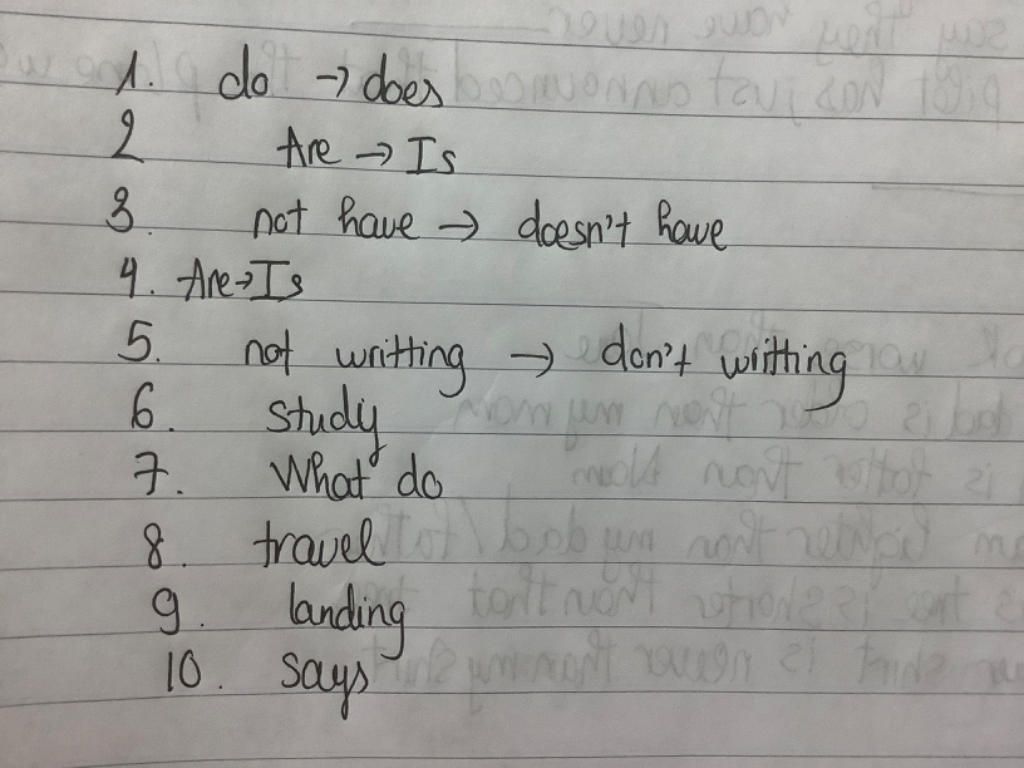 1. do → does
2 Are → Is
3. not have → doesn't have
4. Are → Is
5. not writting → don't writting
6. study
7. What do
8. travel
9. landing
10. says